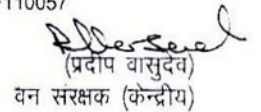 110057
(प्रदीप वासुदेव)
वन संरक्षक (केन्द्रीय)